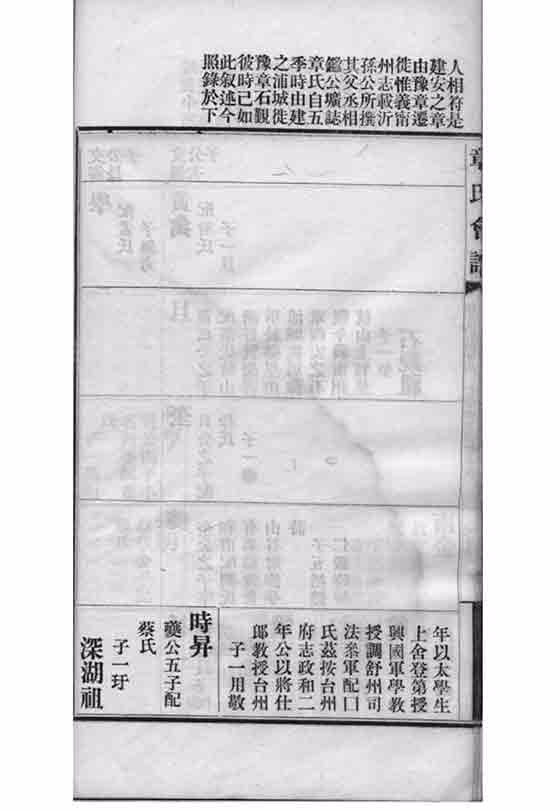 人相符是
建安之章
由豫章遷
徙惟義甯
州志載沂
孫公所撰
其父丞相
鑑公壙誌
章氏自五
季時由建
之浦城徙
豫章石觀
彼時已如
此叙述今
照錄於下
章氏會譜
年以太學生
上舍登第授
興國軍學教
授調舒州司
法叅軍配囗
氏茲按台州
府志政和二
年公以將仕
郎教授台州
子一用敬
時昇
夔公五子配
蔡氏
子一玗
深湖祖